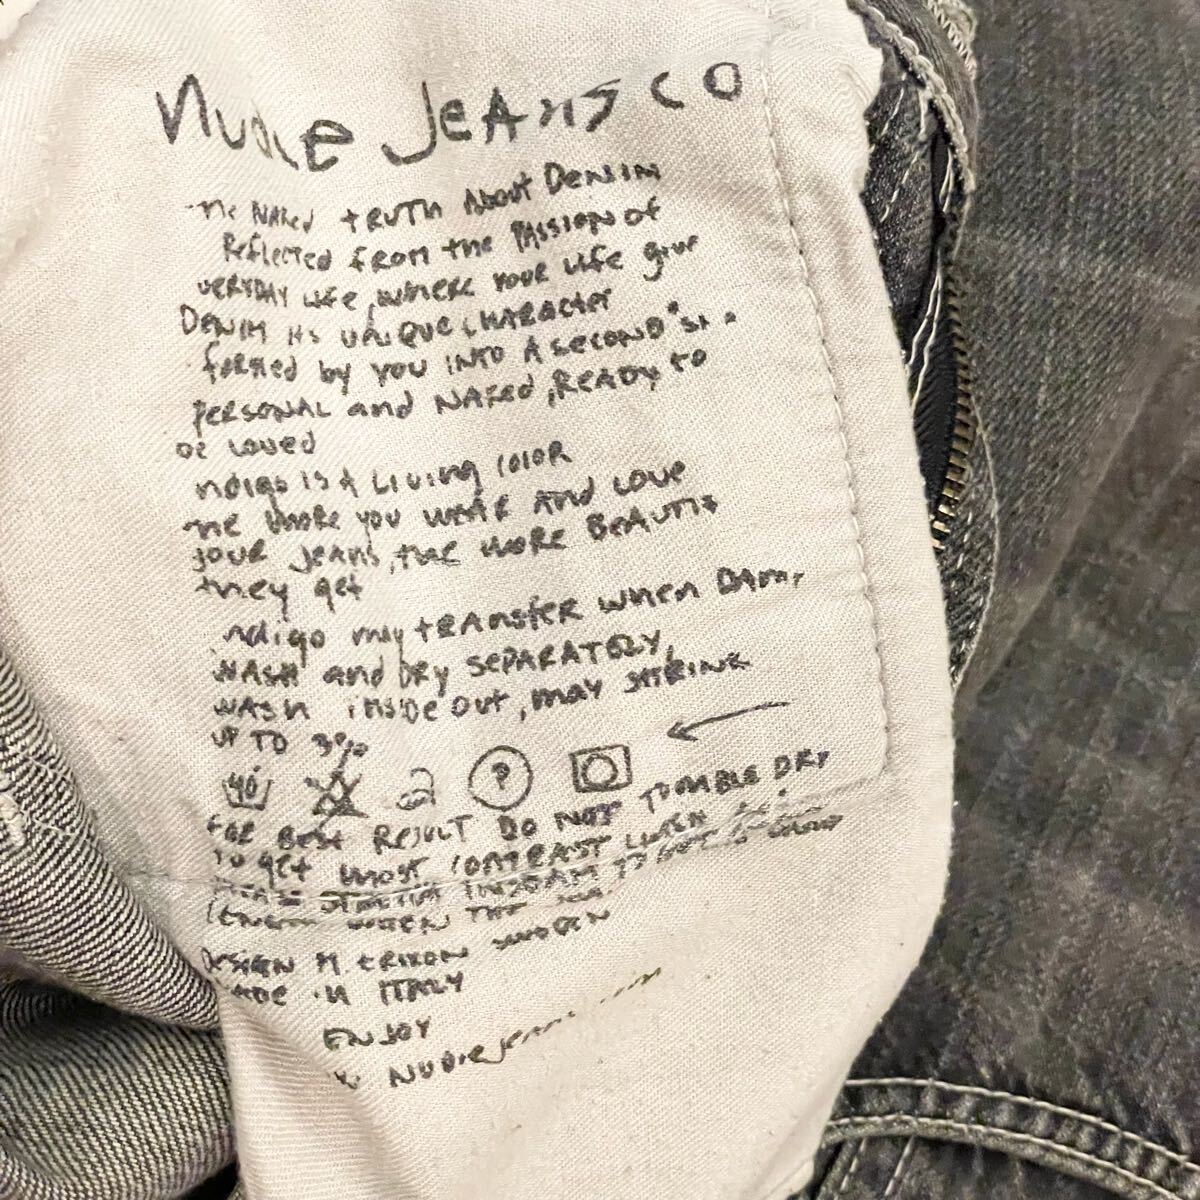 Nudie Jeans co
The Naked truth About Denim
Reflected from the Passion of
everyday Life, where your Life give
Denim its unique character
formed by you into a second
personal and naked, Ready to
be Loved
ndigo is A Living color
The more you wear And Love
your jeans, the more Beautif
they get
ndigo may transfer when Damp
Wash and Dry separately,
Wash inside out, may shrink
up to 3%
40 ?
For best result Do not tumble Dry
To get most contrast
Length when the
Design M Erixon Sweden
ade in Italy
Enjoy
Nudiejeans